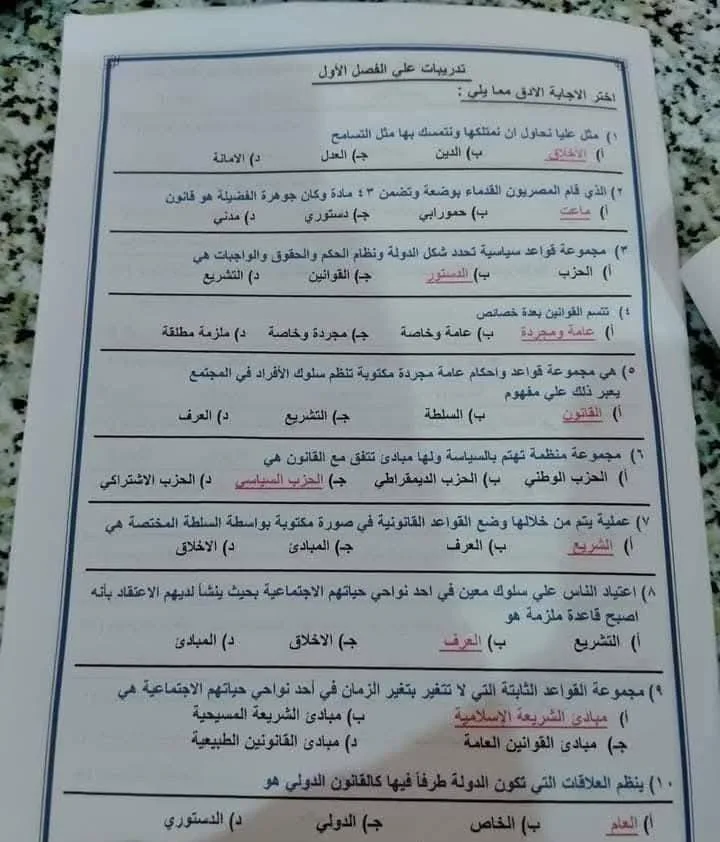 تدريبات علي الفصل الأول
اختر الاجابة الادق مما يلي :
١) مثل عليا نحاول ان نمتلكها ونتمسك بها مثل التسامح
أ) الاخلاق ب) الدين جـ) العدل د) الامانة
٢) الذي قام المصريون القدماء بوضعة وتضمن ٤٣ مادة وكان جوهرة الفضيلة هو قانون
أ) ماعت ب) حمورابي جـ) دستوري د) مدني
٣) مجموعة قواعد سياسية تحدد شكل الدولة ونظام الحكم والحقوق والواجبات هي
أ) الحزب ب) الدستور جـ) القوانين د) التشريع
٤) تتسم القوانين بعدة خصائص
أ) عامة ومجردة ب) عامة وخاصة جـ) مجردة وخاصة د) ملزمة مطلقة
٥) هي مجموعة قواعد واحكام عامة مجردة مكتوبة تنظم سلوك الأفراد في المجتمع
يعبر ذلك علي مفهوم
أ) القانون ب) السلطة جـ) التشريع د) العرف
٦) مجموعة منظمة تهتم بالسياسة ولها مبادئ تتفق مع القانون هي
أ) الحزب الوطني ب) الحزب الديمقراطي جـ) الحزب السياسي د) الحزب الاشتراكي
٧) عملية يتم من خلالها وضع القواعد القانونية في صورة مكتوبة بواسطة السلطة المختصة هي
أ) الشريع ب) العرف جـ) المبادئ د) الاخلاق
٨) اعتياد الناس علي سلوك معين في احد نواحي حياتهم الاجتماعية بحيث ينشأ لديهم الاعتقاد بأنه
اصبح قاعدة ملزمة هو
أ) التشريع ب) العرف جـ) الاخلاق د) المبادئ
٩) مجموعة القواعد الثابتة التي لا تتغير بتغير الزمان في أحد نواحي حياتهم الاجتماعية هي
أ) مبادئ الشريعة الإسلامية ب) مبادئ الشريعة المسيحية
جـ) مبادئ القوانين العامة د) مبادئ القانونين الطبيعية
١٠) ينظم العلاقات التي تكون الدولة طرفاً فيها كالقانون الدولي هو
أ) العام ب) الخاص جـ) الدولي د) الدستوري